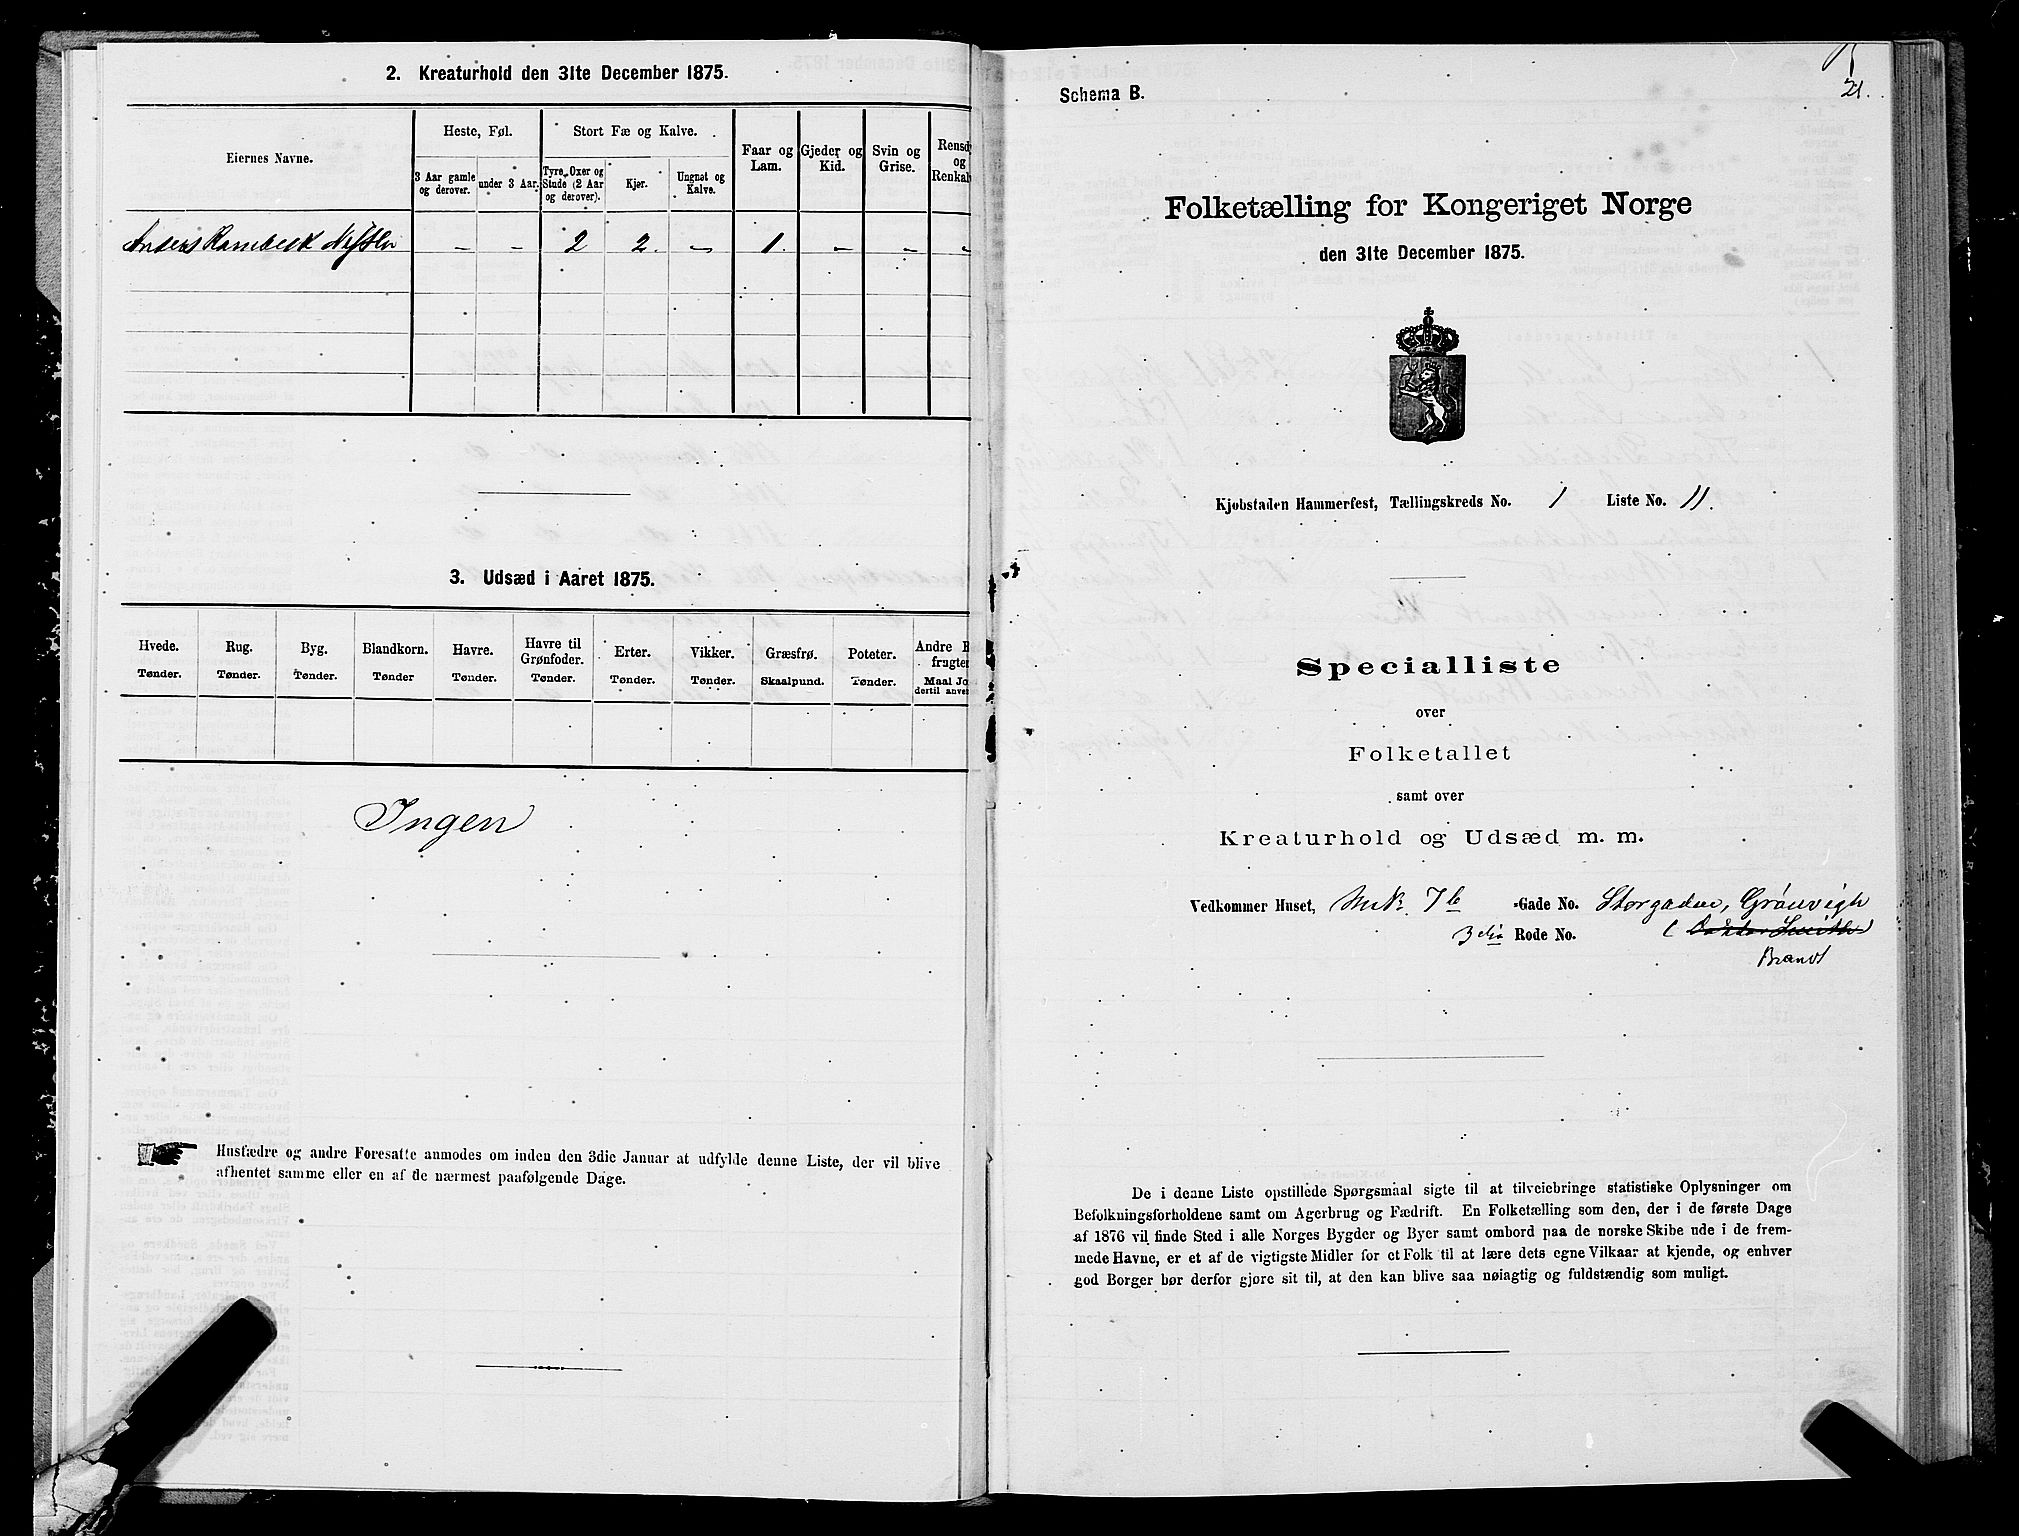 2. Kreaturhold den 31te December 1875.
Eiernes Navne.
Heste, Føl.
Stort Fæ og Kalve.
Faar og Lam.
Gjeder og Kid.
Svin og Grise.
Rensd
og
Renkal
3 Aar gamle og derover.
under 3 Aar.
Tyre, Oxer og Stude (2 Aar og derover).
Kjør.
Ungnøt og Kalve.
Anders Rambeck - - 2 2. - 1. - - -
3. Udsæd i Aaret 1875.
Hvede. Tønder.
Rug. Tønder.
Byg. Tønder.
Blandkorn. Tønder
Havre. Tønder.
Havre til Grønfoder. Tønder.
Erter. Tønder.
Vikker. Tønder.
Græsfrø. Skaalpund.
Poteter. Tønder.
Andre R
frugter
Maal Jo
dertil anve
Ingen
Husfædre og andre Foresatte anmodes om inden den 3die Januar at udfylde denne Liste, der vil blive
afhentet samme eller en af de nærmest paafølgende Dage.
21.
Schema B.
Folketælling for Kongeriget Norge
den 31te December 1875.
Kjøbstaden Hammerfest, Tællingskreds No. 1 Liste No. 11.
Specialliste
over
Folketallet
samt over
Kreaturhold og Udsæd m. m.
Vedkommer Huset, MtN. 7b -Gade No. Storgaden, Grønvigh
3die Rode No. (Doktor Smith)
Brandt
De i denne Liste opstillede Spørgsmaal sigte til at tilveiebringe statistiske Oplysninger om
Befolkningsforholdene samt om Agerbrug og Fædrift. En Folketælling som den, der i de første Dage
af 1876 vil finde Sted i alle Norges Bygder og Byer samt ombord paa de norske Skibe ude i de frem-
mede Havne, er et af de vigtigste Midler for et Folk til at lære dets egne Vilkaar at kjende, og enhver
god Borger bør derfor gjøre sit til, at den kan blive saa nøiagtig og fuldstændig som muligt.